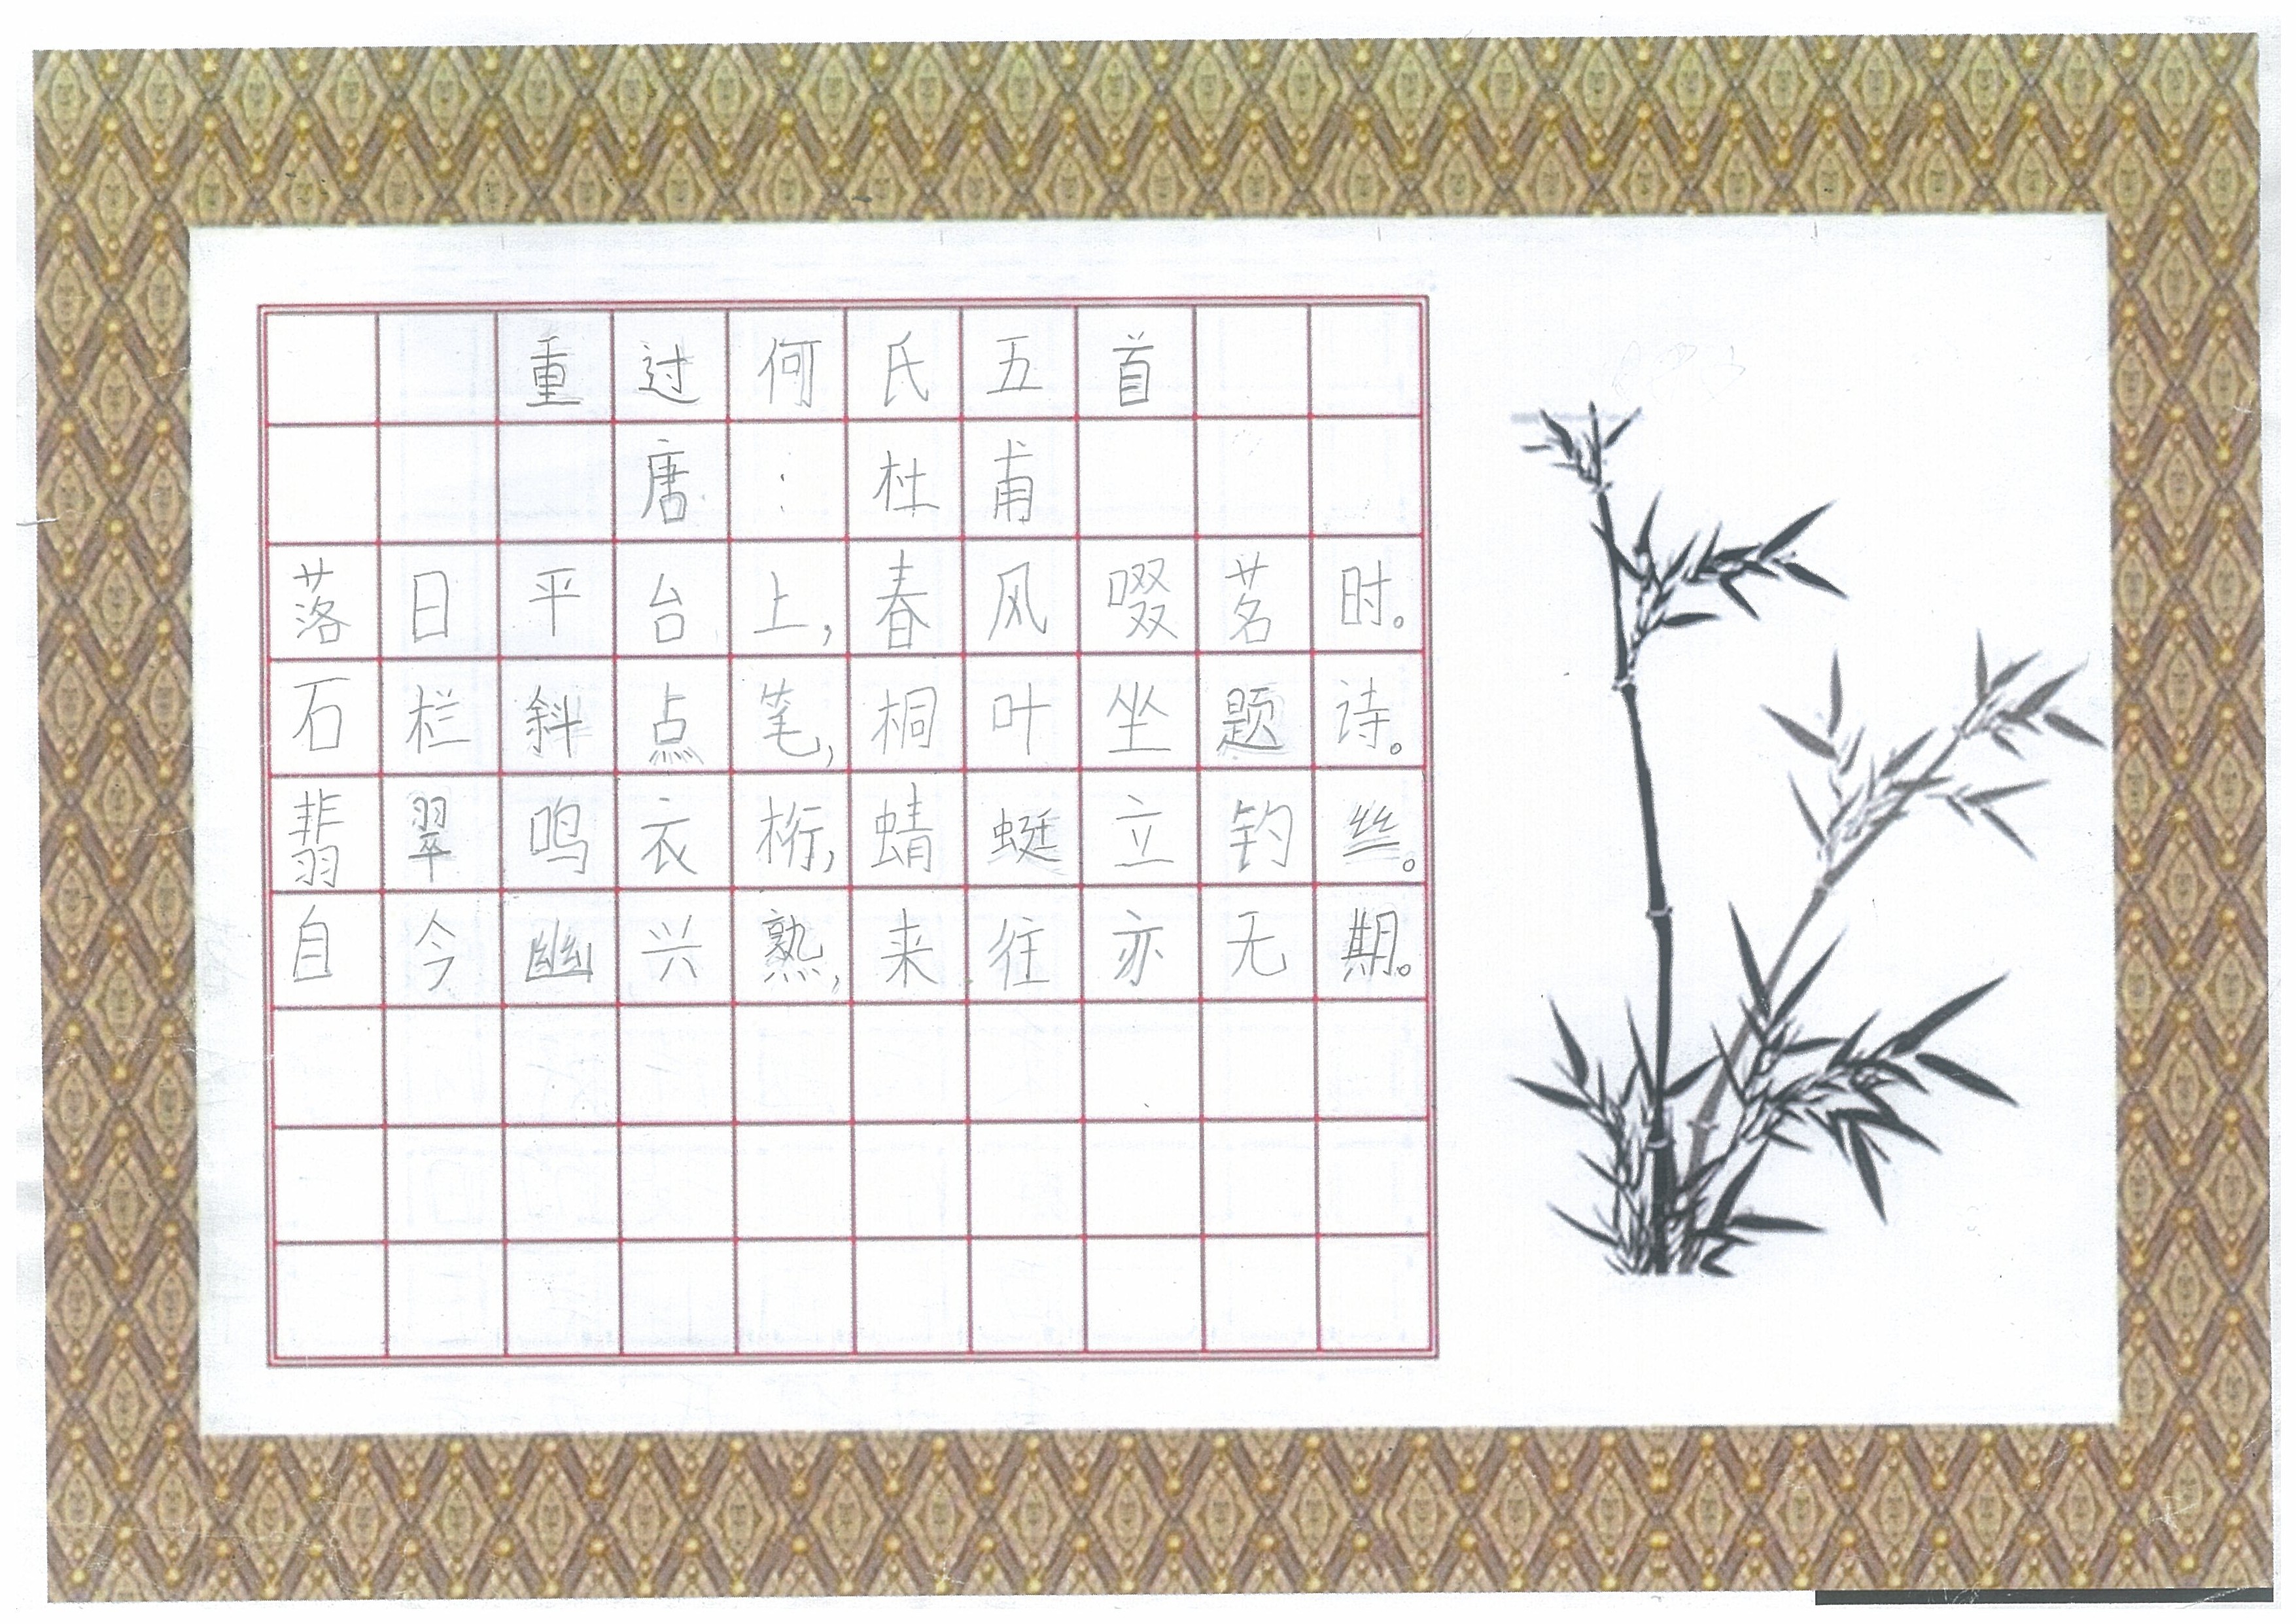 重过何氏五首
唐:杜甫
落日平台上,春风啜茗时。
石栏斜点笔,桐叶坐题诗。
翡翠鸣衣桁,蜻蜓立钓丝。
自今幽兴熟,来往亦无期。